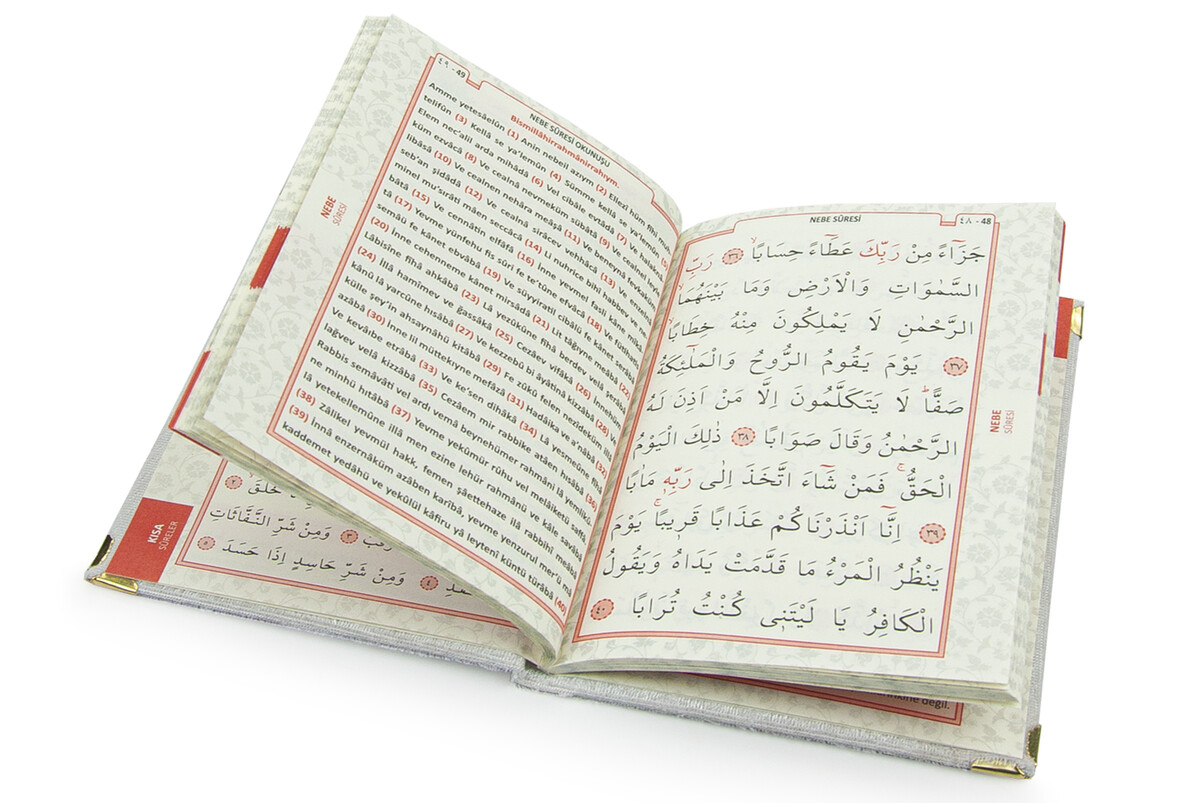 NEBE SÛRESİ
٤٨ - 48
جَزَٓاءً مِنْ رَبِّكَ عَطَٓاءً حِسَابًاۙ ﴿٣٦﴾ رَبِّ
السَّمٰوَاتِ وَالْاَرْضِ وَمَا بَيْنَهُمَا
الرَّحْمٰنِ لَا يَمْلِكُونَ مِنْهُ خِطَابًاۚ
﴿٣٧﴾ يَوْمَ يَقُومُ الرُّوحُ وَالْمَلٰٓئِكَةُ
صَفًّاۜ لَا يَتَكَلَّمُونَ اِلَّا مَنْ اَذِنَ لَهُ
الرَّحْمٰنُ وَقَالَ صَوَابًا ﴿٣٨﴾ ذٰلِكَ الْيَوْمُ
الْحَقُّۚ فَمَنْ شَٓاءَ اتَّخَذَ اِلٰى رَبِّه۪ مَاٰبًا
﴿٣٩﴾ اِنَّٓا اَنْذَرْنَاكُمْ عَذَابًا قَر۪يبًاۚ يَوْمَ
يَنْظُرُ الْمَرْءُ مَا قَدَّمَتْ يَدَاهُ وَيَقُولُ
الْكَافِرُ يَا لَيْتَن۪ي كُنْتُ تُرَابًا ﴿٤٠﴾
NEBE
SÛRESİ
٤٩ - 49
NEBE SÛRESİ OKUNUŞU
Bismillâhirrahmânirrahıym.
Amme yetesâelûn (1) Anin nebeil azıym (2) Ellezî hüm fîhi muh-
telifûn (3) Kellâ se ya'lemûn (4) Sümme kellâ se ya'lemûn (5)
Elem nec'alil arda mihâdâ (6) Vel cibâle evtâdâ (7) Ve halaknâ-
küm ezvâcâ (8) Ve cealnâ nevmeküm sübâtâ (9) Ve cealnel leyle
libâsâ (10) Ve cealnen nehâra meâşâ (11) Ve beneynâ fevkaküm
seb'an şidâdâ (12) Ve cealnâ sirâcev vehhâcâ (13) Ve enzelnâ
minel mu'sırâti mâen seccâcâ (14) Li nuhrice bihî habbev ve ne-
bâtâ (15) Ve cennâtin elfâfâ (16) İnne yevmel fasli kâne mîkâ-
tâ (17) Yevme yünfehu fis sûri fe te'tûne efvâcâ (18) Ve fütihatis
semâü fe kânet ebvâbâ (19) Ve süyyiratil cibâlü fe kânet serâbâ
(20) İnne cehenneme kânet mirsâdâ (21) Lit tâğıyne meâbâ (22)
Lâbisîne fîhâ ahkâbâ (23) Lâ yezûkûne fîhâ berdev velâ şerâbâ
(24) İllâ hamîmev ve ğassâkâ (25) Cezâev vifâkâ (26) İnnehüm
kânû lâ yarcûne hısâbâ (27) Ve kezzebû bi âyâtinâ kizzâbâ (28) Ve
külle şey'in ahsaynâhü kitâbâ (29) Fe zûkû felen nezîdeküm illâ
azâbâ (30) İnne lil müttekıyne mefâzâ (31) Hadâika ve a'nâbâ (32)
Ve kevâıbe etrâbâ (33) Ve ke'sen dihâkâ (34) Lâ yesmeûne fîhâ
lağvev velâ kizzâbâ (35) Cezâem mir rabbike atâen hısâbâ (36)
Rabbis semâvâti vel ardı vemâ beynehümer rahmâni lâ yemlikû-
ne minhü hıtâbâ (37) Yevme yekûmür rûhu vel melâiketü saffâ,
lâ yetekellemûne illâ men ezine lehür rahmânü ve kâle savâbâ
(38) Zâlikel yevmül hakk, femen şâettehaze ilâ rabbihî meâbâ
(39) İnnâ enzernâküm azâben karîbâ, yevme yenzurul mer'ü mâ
kaddemet yedâhü ve yekûlül kâfiru yâ leytenî küntü türâbâ (40)
NEBE
SÛRESİ
KISA
SÛRELER
خَلَقَۙ ﴿٢﴾
﴿٣﴾ وَمِنْ شَرِّ النَّفَّاثَاتِ
﴿٤﴾ وَمِنْ شَرِّ حَاسِدٍ اِذَا حَسَدَ ﴿٥﴾
değil.